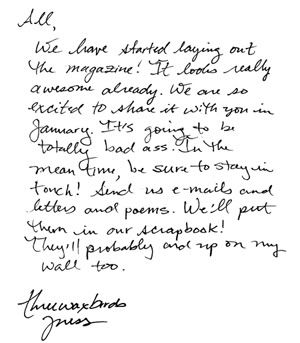 All,
We have started laying out
the magazine! It looks really
awesome already. We are so
excited to share it with you in
January. It's going to be
totally bad ass. In the
mean time, be sure to stay in
touch! Send us e-mails and
letters and poems. We'll put
them in our scrapbook!
They'll probably end up on my
wall too.
threewaxbirds
press